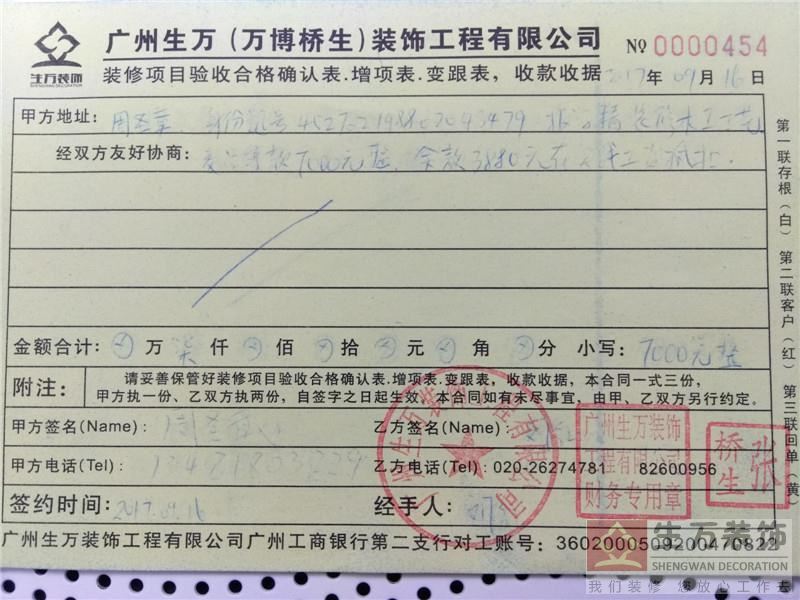 生万装饰
SHENGWAN DECORATION
广州生万（万博桥生）装饰工程有限公司
№ 0000454
装修项目验收合格确认表.增项表.变跟表，收款收据 2017年 09月 16日
甲方地址：
经双方友好协商： 7000元整，余款3880元
金额合计： 万 柒 仟 佰 拾 元 角 分 小写： 7000元整
附注：
请妥善保管好装修项目验收合格确认表.增项表.变跟表，收款收据，本合同一式三份，
甲方执一份、乙双方执两份，自签字之日起生效。本合同如有未尽事宜，由甲、乙双方另行约定。
甲方签名(Name)：
乙方签名(Name)：
甲方电话(Tel)：
乙方电话(Tel)：020-26274781 82600956
签约时间：2017.09.16
经手人：
广州生万装饰工程有限公司广州工商银行第二支行对工账号：3602000509200470822
第一联存根（白） 第二联客户（红） 第三联回单（黄）
广州生万装饰工程有限公司
广州生万装饰
工程有限公司
财务专用章
张桥生
生万装饰
SHENGWAN DECORATION
我们装修 您放心工作去